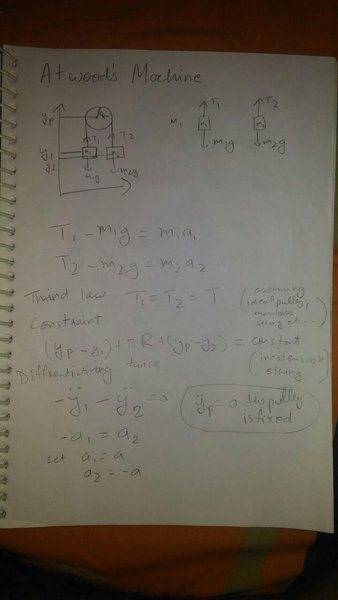 Atwood's Machine
yp
R
T1 T2
y1 m1 m2
y2
m1g m2g
T1 T2
m1 m1 m2
m1g m2g
T1 - m1g = m1a1
T2 - m2g = m2a2
Third law T1 = T2 = T (assuming ideal pulley, massless string etc..)
Constraint
(yp - y1) + πR + (yp - y2) = constant
(inextensible string)
Differentiating twice
-ÿ1 - ÿ2 = 0
ÿp = 0 the pulley is fixed
-a1 = a2
Let a1 = a
a2 = -a